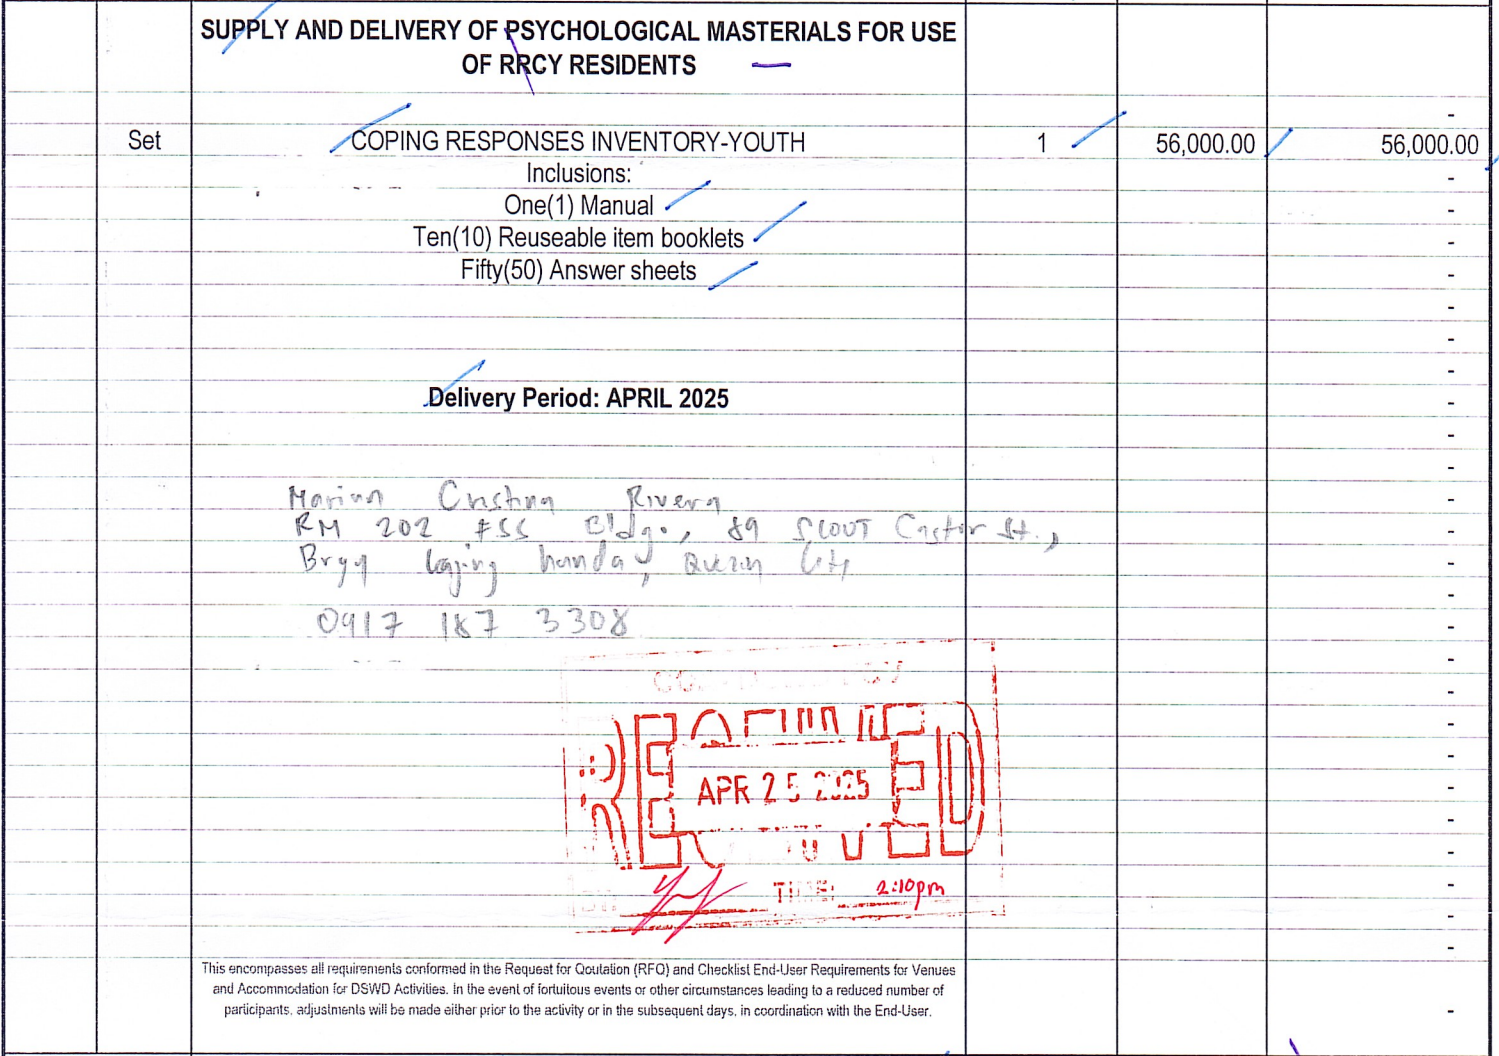 SUPPLY AND DELIVERY OF PSYCHOLOGICAL MASTERIALS FOR USE
OF RRCY RESIDENTS
-
Set COPING RESPONSES INVENTORY-YOUTH 1 56,000.00 56,000.00
Inclusions: -
One(1) Manual -
Ten(10) Reuseable item booklets -
Fifty(50) Answer sheets -
-
-
-
Delivery Period: APRIL 2025 -
-
-
Cristina Rivera -
RM 202 FSS Bldg., 89 SCOUT Castor St., -
Brgy Laging handa, Quezon City -
-
0917 187 3308 -
-
-
-
RECEIVED -
APR 25 2025 -
-
-
TIME: 2:10pm -
-
-
This encompasses all requirements conformed in the Request for Qoutation (RFQ) and Checklist End-User Requirements for Venues
and Accommodation for DSWD Activities. In the event of fortuitous events or other circumstances leading to a reduced number of
participants, adjustments will be made either prior to the activity or in the subsequent days, in coordination with the End-User. -